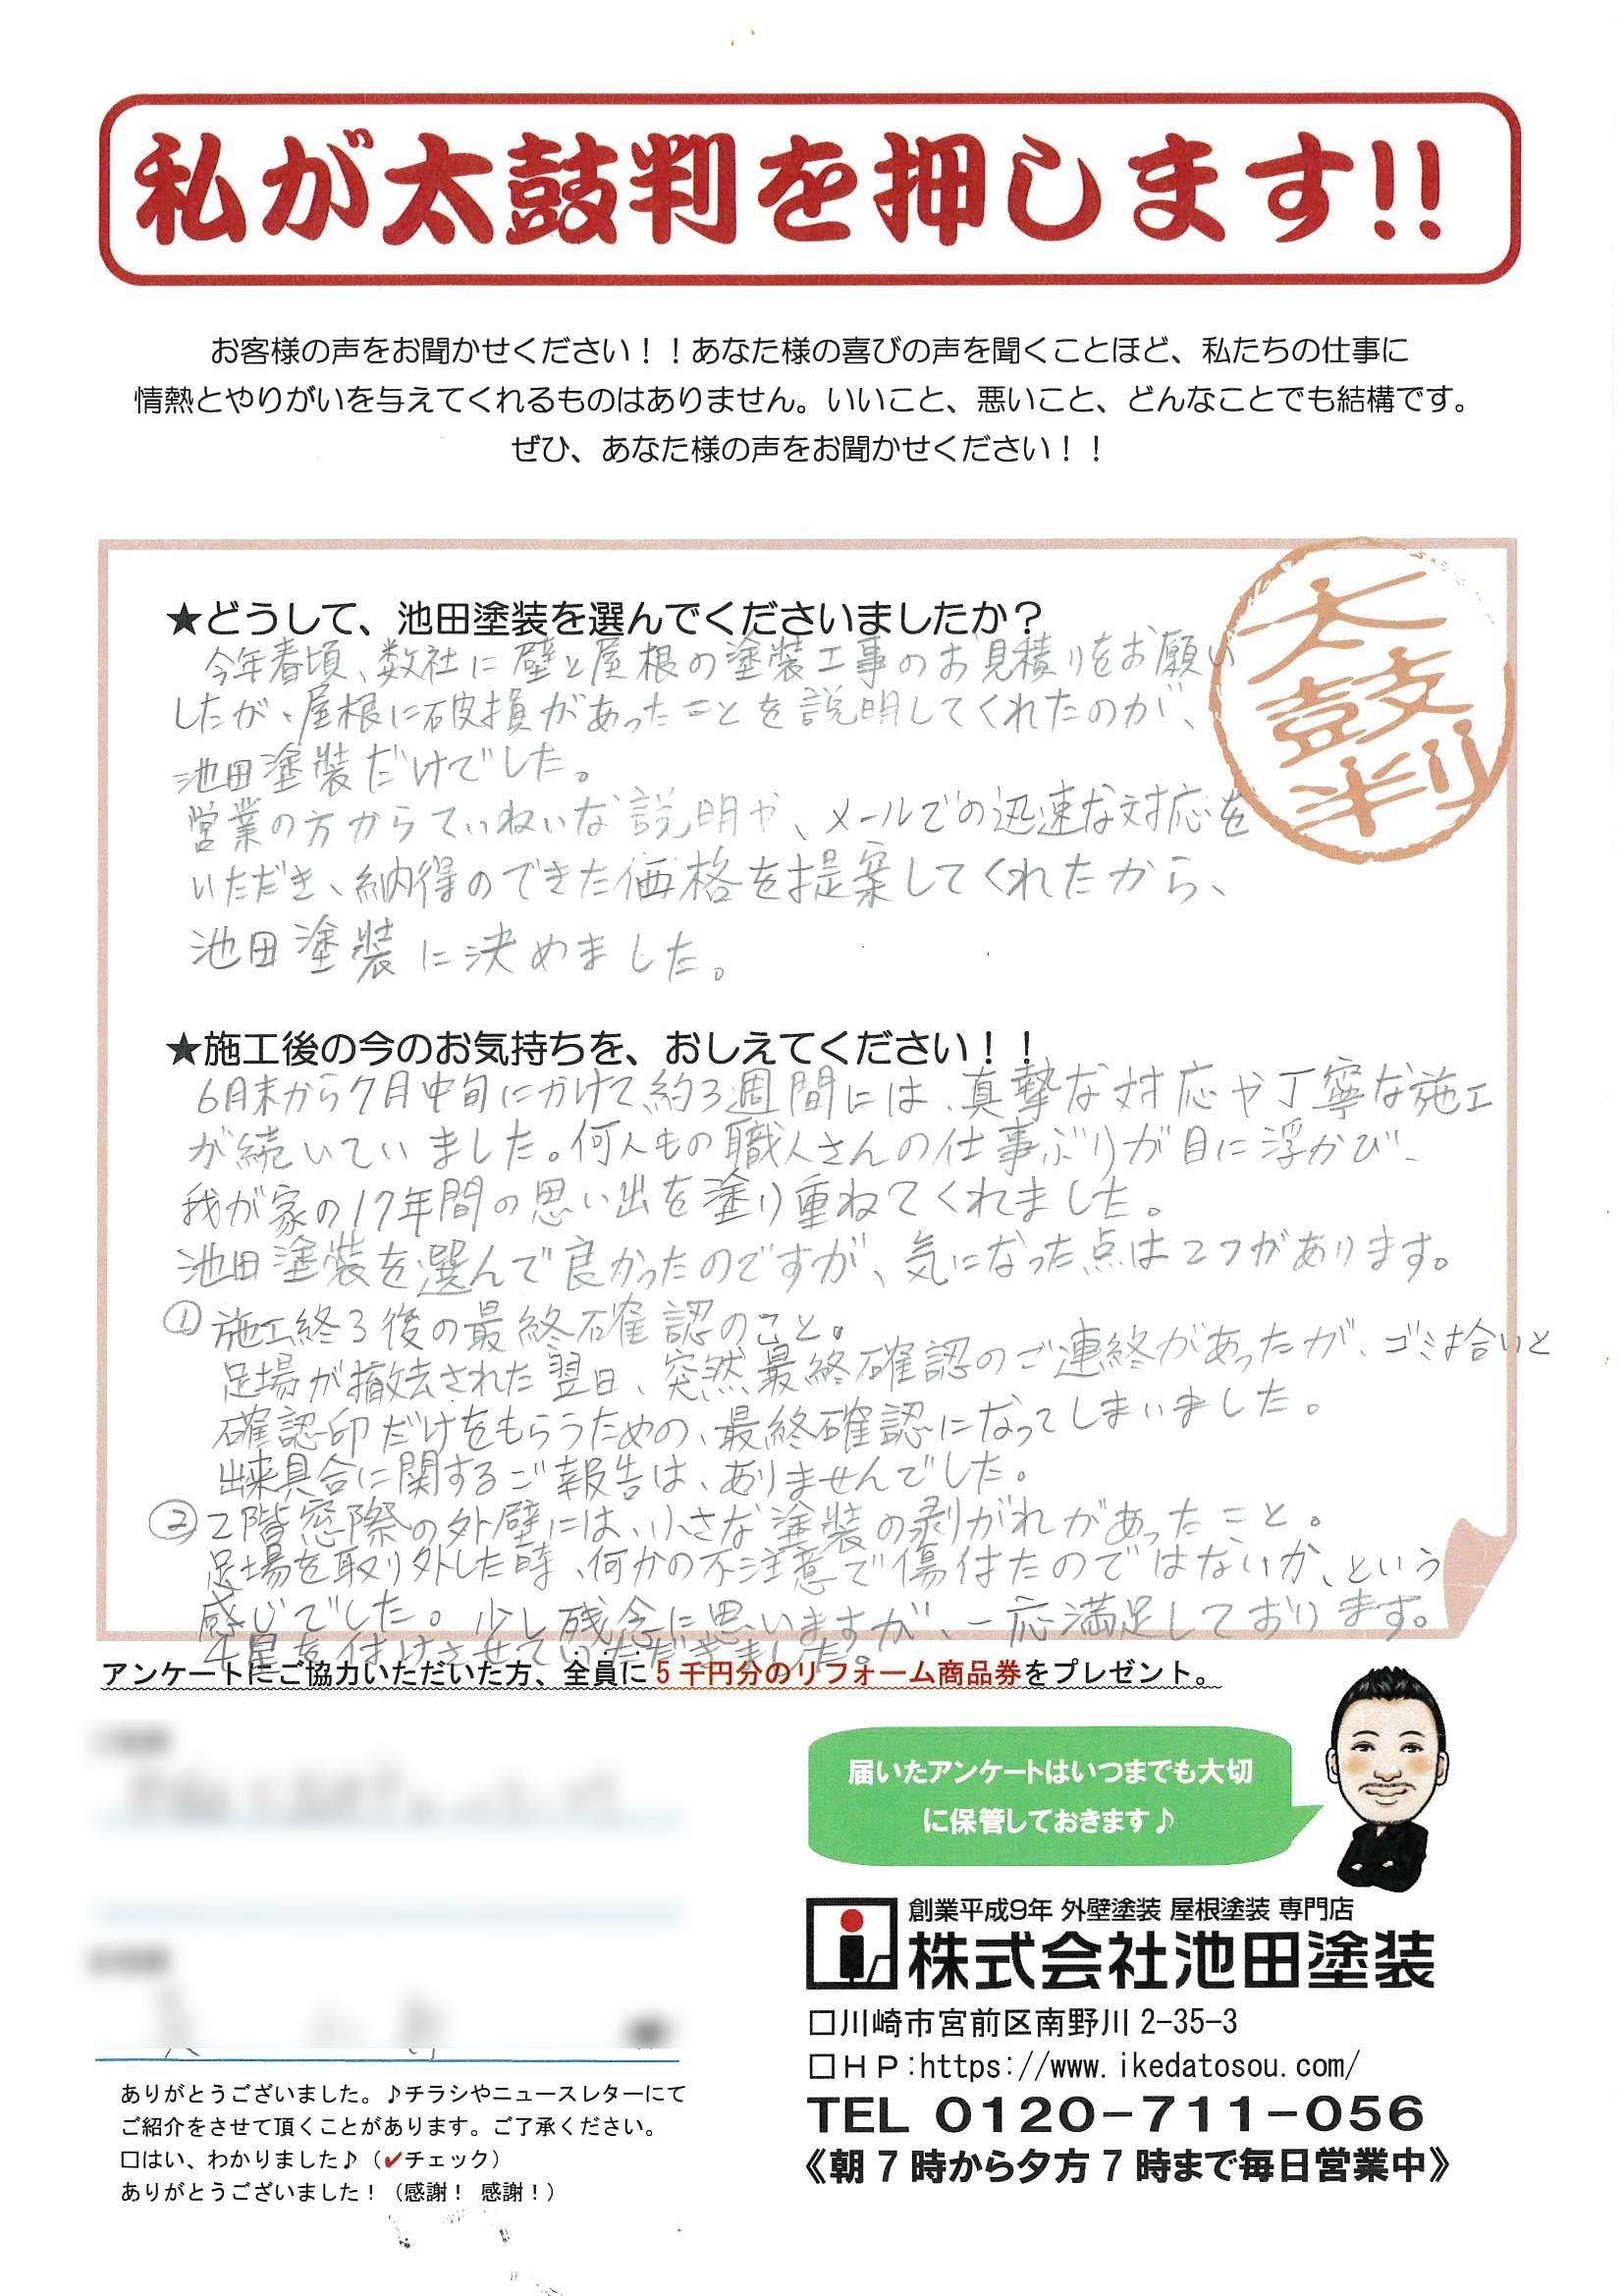 私が太鼓判を押します!!
お客様の声をお聞かせください！！あなた様の喜びの声を聞くことほど、私たちの仕事に
情熱とやりがいを与えてくれるものはありません。いいこと、悪いこと、どんなことでも結構です。
ぜひ、あなた様の声をお聞かせください！！
太鼓判
★どうして、池田塗装を選んでくださいましたか？
今年春頃、数社に壁と屋根の塗装工事のお見積りをお願い
したが、屋根に破損があったことを説明してくれたのが、
池田塗装だけでした。
営業の方からていねいな説明や、メールでの迅速な対応を
いただき、納得のできた価格を提案してくれたから、
池田塗装に決めました。
★施工後の今のお気持ちを、おしえてください！！
6月末から7月中旬にかけて、約3週間には、真摯な対応や丁寧な施工
が続いていました。何人もの職人さんの仕事ぶりが目に浮かび、
我が家の17年間の思い出を塗り重ねてくれました。
池田塗装を選んで良かったのですが、気になった点は2つがあります。
① 施工終了後の最終確認のこと。
足場が撤去された翌日、突然最終確認のご連終があったが、ゴミ拾いと
確認印だけをもらうための、最終確認になってしまいました。
出来具合に関するご報告は、ありませんでした。
② 2階窓際の外壁には、小さな塗装の剥がれがあったこと。
足場を取り外した時、何かの不注意で傷付たのではないか、という
感じでした。少し残念に思いますが、一応満足しております。
4星を付けさせていただきました。
アンケートにご協力いただいた方、全員に5千円分のリフォーム商品券をプレゼント。
届いたアンケートはいつまでも大切
に保管しておきます♪
創業平成9年 外壁塗装 屋根塗装 専門店
株式会社池田塗装
□川崎市宮前区南野川 2-35-3
□ＨＰ:https://www.ikedatosou.com/
TEL 0120-711-056
《朝7時から夕方7時まで毎日営業中》
ありがとうございました。♪チラシやニュースレターにて
ご紹介をさせて頂くことがあります。ご了承ください。
□はい、わかりました♪（✔チェック）
ありがとうございました！（感謝！ 感謝！）